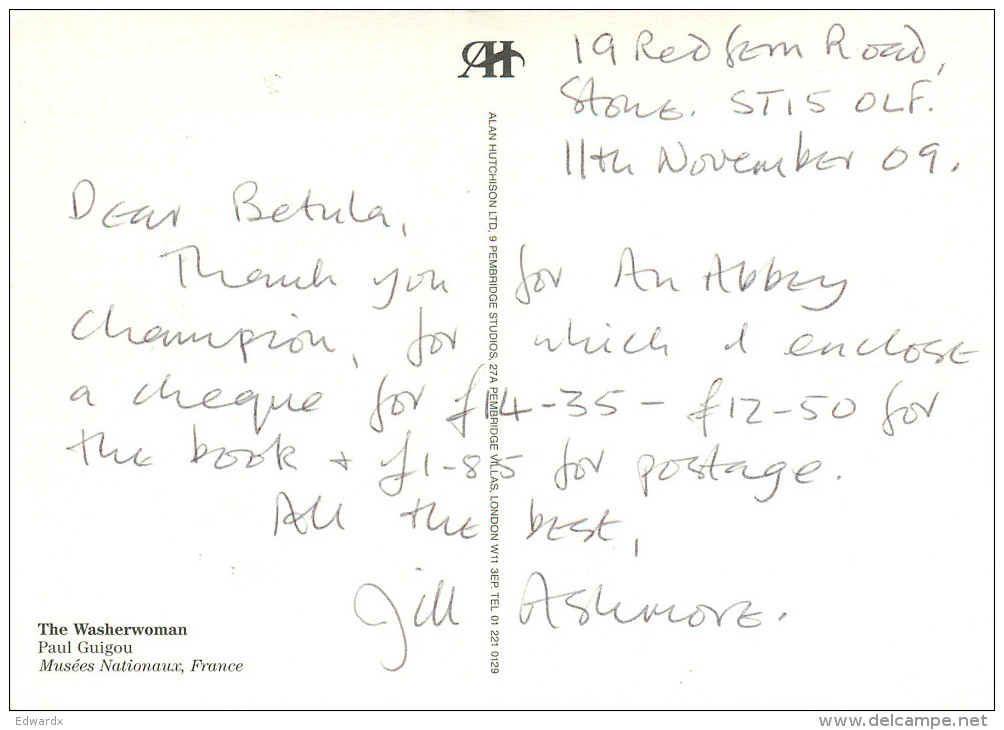 AH
19 Redfern Road,
Stone. ST15 0LF.
11th November 09.
Dear Betula,
Thank you for An Abbey
Champion, for which I enclose
a cheque for £14-35 - £12-50 for
the book + £1-85 for postage.
All the best,
Jill Ashmore.
ALAN HUTCHISON LTD, 9 PEMBRIDGE STUDIOS, 27A PEMBRIDGE VILLAS, LONDON W11 3EP. TEL 01 221 0129
The Washerwoman
Paul Guigou
Musées Nationaux, France
Edwardx
www.delcampe.net